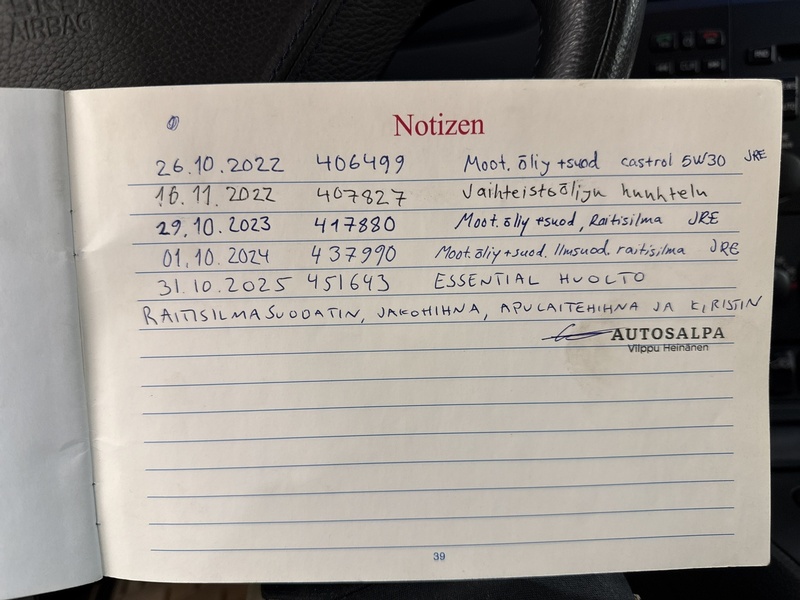 AIRBAG
Notizen
26.10.2022 406499 Moot. öliy +suod castrol 5W30 JRE
16.11.2022 407827 Vaihteistoöljyn huuhtelu
29.10.2023 417880 Moot. öliy +suod, Raitisilma JRE
01.10.2024 437990 Moot. öliy+suod. Ilmsuod. raitisilma JRE
31.10.2025 451643 ESSENTIAL HUOLTO
RAITISILMASUODATIN, JAKOHIHNA, APULAITEHIHNA JA KIRISTIN
AUTOSALPA
Vilppu Heinänen
39